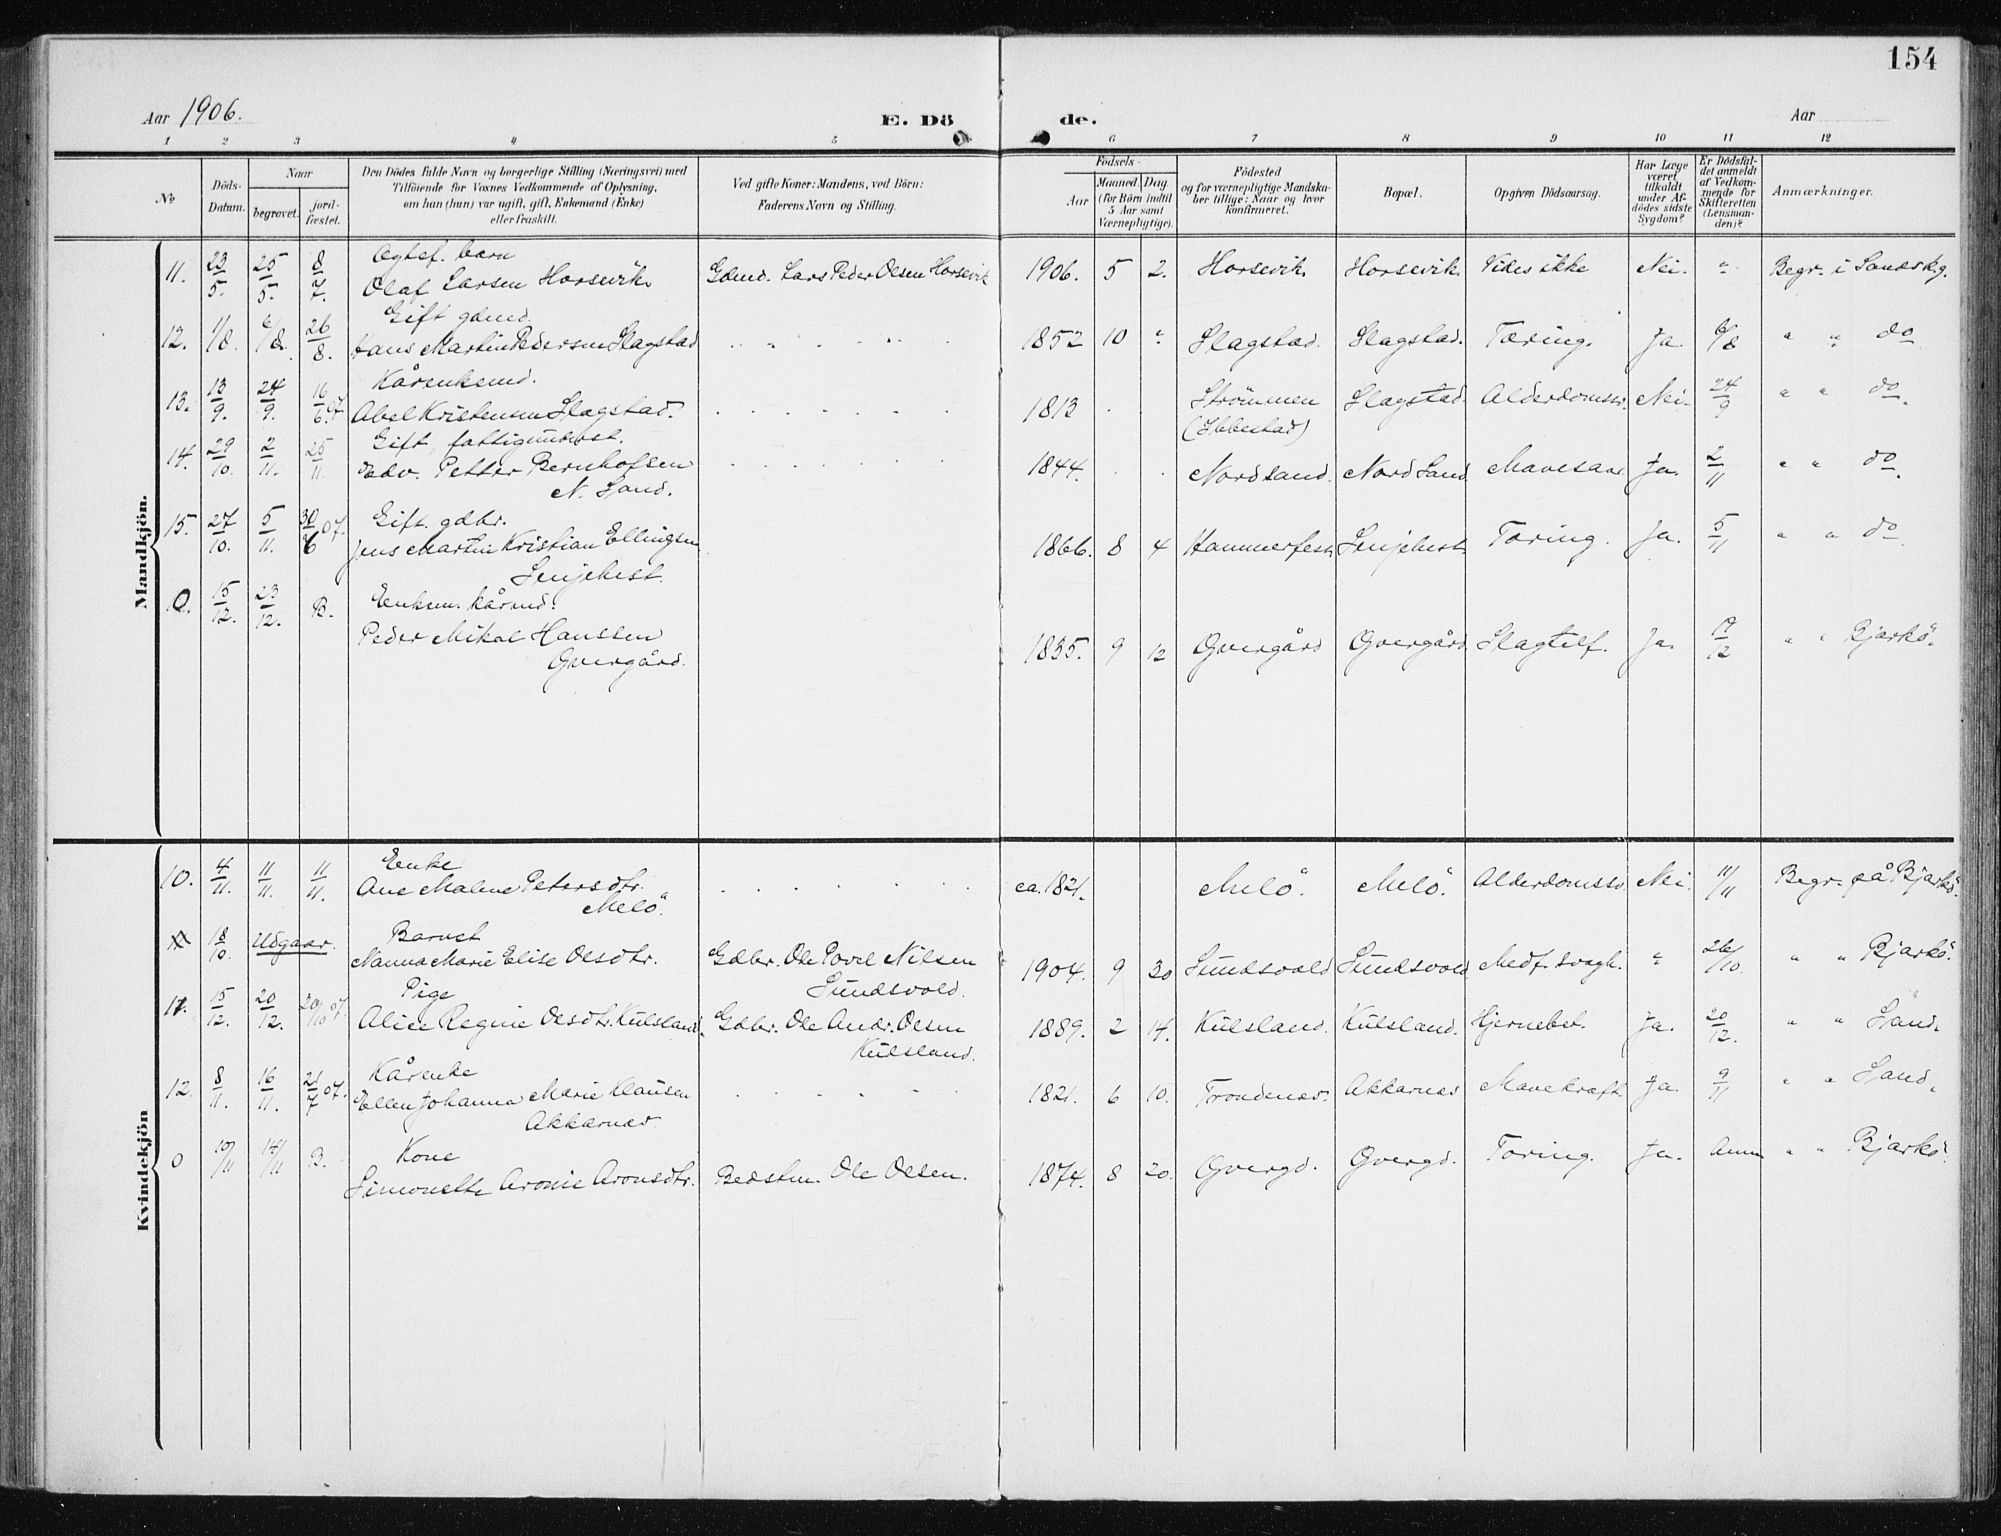 154
Aar 1906.
E. Dö
de.
Aar
1 2 3 4 5 6 7 8 9 10 11 12
No
Döds-Datum.
Naar
begravet.
jord-fæstet.
Den Dödes fulde Navn og borgerlige Stilling (Næringsvei) med
Tilföiende for Voxnes Vedkommende af Oplysning,
om han (hun) var ugift, gift, Enkemand (Enke)
eller fraskilt.
Ved gifte Koner: Mandens, ved Börn:
Faderens Navn og Stilling.
Födsels-
Aar
Maaned. Dag.
(for Börn indtil
5 Aar samt
Værnepligtige).
Födested
og for værnepligtige Mandska-
ber tillige: Naar og hvor
konfirmeret.
Bopæl.
Opgiven Dödsaarsag.
Har Læge
været
tilkaldt
under Af-
dödes sidste
Sygdom?
Er Dödsfal-
det anmeldt
af Vedkom-
mende for
Skifteretten
(Lensman-
den)?
Anmærkninger.
Mandkjön.
Ægtef. barn
11. 23/5. 25/5. 8/7. Olaf Larsen Horsevik Gdmd. Lars Peder Olsen Horsevik 1906. 5 2. Horsevik Horsevik. Vides ikke Nei. " Begr. i Sandskg.
Gift gdmd.
12. 1/8. 6/8. 26/8. Hans Martin Pedersen Slagstad 1852 10 " Slagstad. Slagstad. Tæring. Ja. 6/8 " " do
Kårenkemd.
13. 13/9. 24/9. 16/6.07 Abel Kristensen Slagstad. 1813 Strømmen Slagstad. Alderdomssv. Nei. 24/9 " " do.
(Ibbestad)
Gift, fattigunderst.
14. 29/10. 2/11. 25/11. Edv. Petter Bernhofsen 1844. Nordsand. Nord Sand Mavesaar Ja. 2/11 " " do
N. Sand.
Gift. gdbr.
15. 27/10. 5/11. 30/6 07. Jens Martin Kristian Ellingsen 1866. 8 4 Hammerfest Senjehest Tæring. Ja. 5/11 " " do
Senjehest
Enkem. kårmd.
0. 15/12. 23/12. B. Peder Mikal Hanssen 1835. 9 12 Øvergård Øvergård Slagtilf. Ja. 19/12 " " Bjarkö.
Øvergård.
Kvindekjön
Enke
10. 4/11. 11/11. 11/11. Ane Malene Petersdtr. ca. 1821. Melö. Melö. Alderdomssv. Nei. 11/11 Begr. på Bjarkö.
Melö.
Barnet
18/10. Udgaar. Nanna Marie Elise Olsdtr. Gdbr. Ole Povel Nilsen 1904. 9 30 Sundsvold Sundsvold Medf. svagh. " 26/10. " " Bjarkö.
Sundsvold.
Pige
11. 15/12. 20/12. 20/10 07. Alice Regine Olsdtr. Kulsland. Gdbr. Ole Andr. Olsen 1889. 2 14. Kulsland. Kulsland. Hjernebet. Ja. 20/12. " " Sand.
Kulsland.
Kårenke
12. 8/11. 16/11. 21/7 07. Ellen Johanna Marie Klausen 1821. 6 10. Trondenæs. Akkarnæs Mavekræft. Ja. 9/11 " " Sand.
Akkarnæs
Kone
0 10/11 14/11 B. Simonette Aronie Aronsdtr. Bedstm. Ole Olsen. 1874. 8 20. Øvergd. Øvergd. Tæring. Ja. Anm " " Bjarkö.